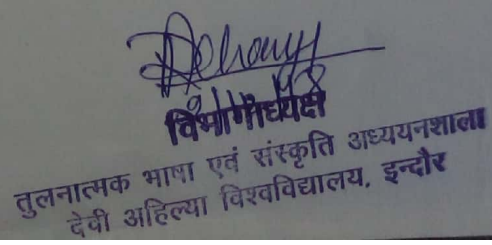 विभागाध्यक्ष
तुलनात्मक भाषा एवं संस्कृति अध्ययनशाला
देवी अहिल्या विश्वविद्यालय, इन्दौर